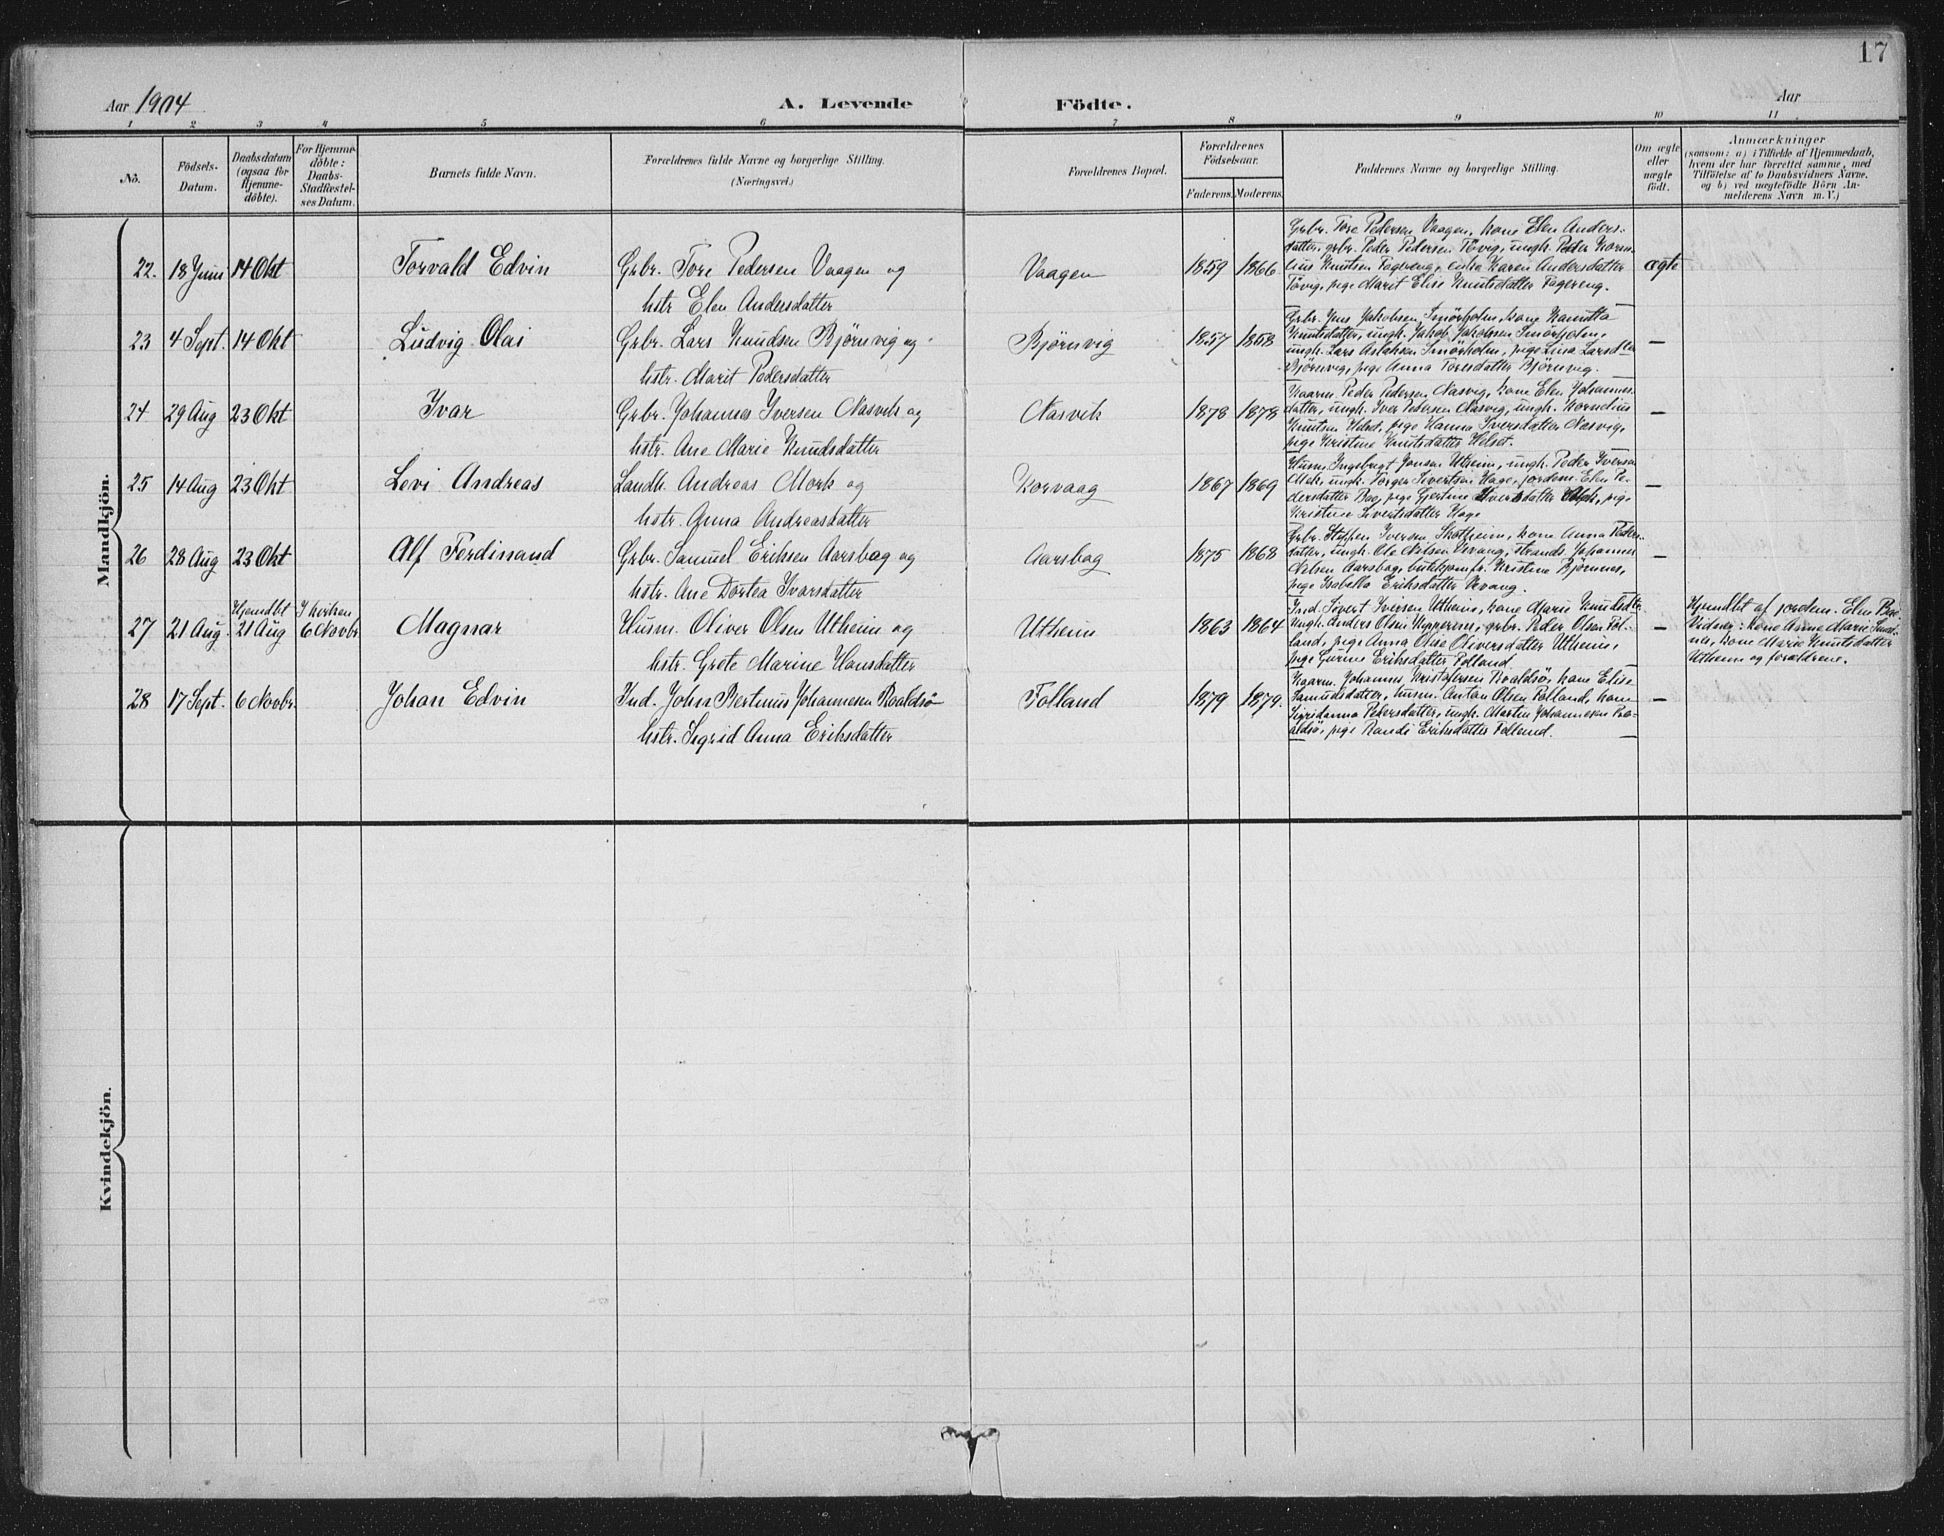 17
Aar 1904 A. Levende Födte. Aar
1 2 3 4 5 6 7 8 9 10 11
No. Födsels-Datum. Daabsdatum (ogsaa for Hjemme-döbte). For Hjemme-döbte: Daabs-Stadfæstel-ses Datum. Barnets fulde Navn. Forældrenes fulde Navne og borgerlige Stilling. (Næringsvei.) Forældrenes Bopæl. Forældrenes Födselsaar. Faderens. Moderens. Faddernes Navne og borgerlige Stilling. Om ægte eller uægte födt. Anmærkninger (saasom: a) i Tilfælde af Hjemmedaab, hvem der har forrettet samme, med Tilföielse af to Daabsvidners Navne. og b) ved uægtefödte Börn An-melderens Navn m. V.)
Mandkjön.
22. 18 Juni 14 Okt Torvald Edvin Grbr. Tore Pedersen Vaagen og Vaagen 1859 1866 ægte
hstr Elen Andersdatter
Grbr. Tore Pedersen Vaagen, kone Elen Anders-
datter, grbr. Peder Pedersen Tövig, ungk. Peder Korne-
lius Knutsen Fagereng, enke Karen Andersdatter
Tövig, pige Marit Elise Knutsdatter Fagereng.
23 4 Sept. 14 Okt Ludvig Olai Grbr. Lars Knudsen Bjørnvig og Bjørnvig 1857 1858 —
hstr. Marit Pedersdatter
Grbr. Jens Jakobsen Smörholm, kone
Knutsdatter, ungk. Jakob Jakobsen Smörholm,
ungk. Lars Aslaksen Smörholm, pige Lina Larsdtr
Bjørnvig, pige Anna Toresdatter Bjørnvig.
24 29 Aug 23 Okt Ivar Grbr. Johannes Iversen Nasvik og Nasvik 1878 1878 —
hstr. Ane Marie Knudsdatter
Kaarm. Peder Pedersen Nasvig, kone Elen Johannes-
datter, ungk. Iver Pedersen Nasvig, ungk. Kornelius
Knutsen Helset, pige Hanna Iversdatter Nasvig,
pige Kristine Knutsdatter Helset.
25 14 Aug 23 Okt Levi Andreas Landh. Andreas Mork og Korvaag 1867 1869 —
hstr. Anna Andreasdatter
Husm. Ingebrigt Jonsen Utheim, ungk. Peder Iversen
ungk. Torger Sivertsen Hage, jordem. Elen Pe-
dersdatter Bae, pige Gjertine pige
Kristine Sivertsdatter Hage
26 28 Aug 23 Okt Alf Ferdinand Grbr. Samuel Eriksen Aarsbag og Aarsbag 1875 1868 —
hstr. Ane Dortea Ivarsdatter
Grbr. Steffen Iversen Skotheim, kone Anna Peders-
datter, ungk. Ole Nilsen Vevang, strands. Johannes
Nelsen Aarsbag, butikjomfr. Kristine Bjørnnes,
pige Isabella Eriksdatter Vevang.
27 21 Aug. Hjemdbt 21 Aug I kirken 6 Novbr Magnar Husm. Oliver Olsen Utheim og Utheim 1863 1864 —
hstr. Grete Marine Hansdatter
Ind. Sivert Iversen Utheim, kone Marie Knudsdtr
Ungk. Anders Olsen grbr. Peder Olsen Fol-
land, pige Anna Olise Oliversdatter Utheim,
pige Gurine Eriksdatter Folland
Hjemdbt af jordem. Elen Bae
Vidner: kone Anne Marie
kone Marie Knutsdatter
Utheim og forældrene.
28 17 Sept. 6 Novbr. Johan Edvin Ind. John Bertinus Johannesen Roaldsö Folland 1879 1879. —
hstr. Sigrid Anna Eriksdatter
Kaarm. Johannes Kristofersen Roaldsö, kone Elise
Samuelsdatter, husm. Anton Olsen Folland, kone
Sigridanna Pedersdatter, ungk. Martin Johannesen Ro-
aldsö, pige Randi Eriksdatter Folland.
Kvindekjön.